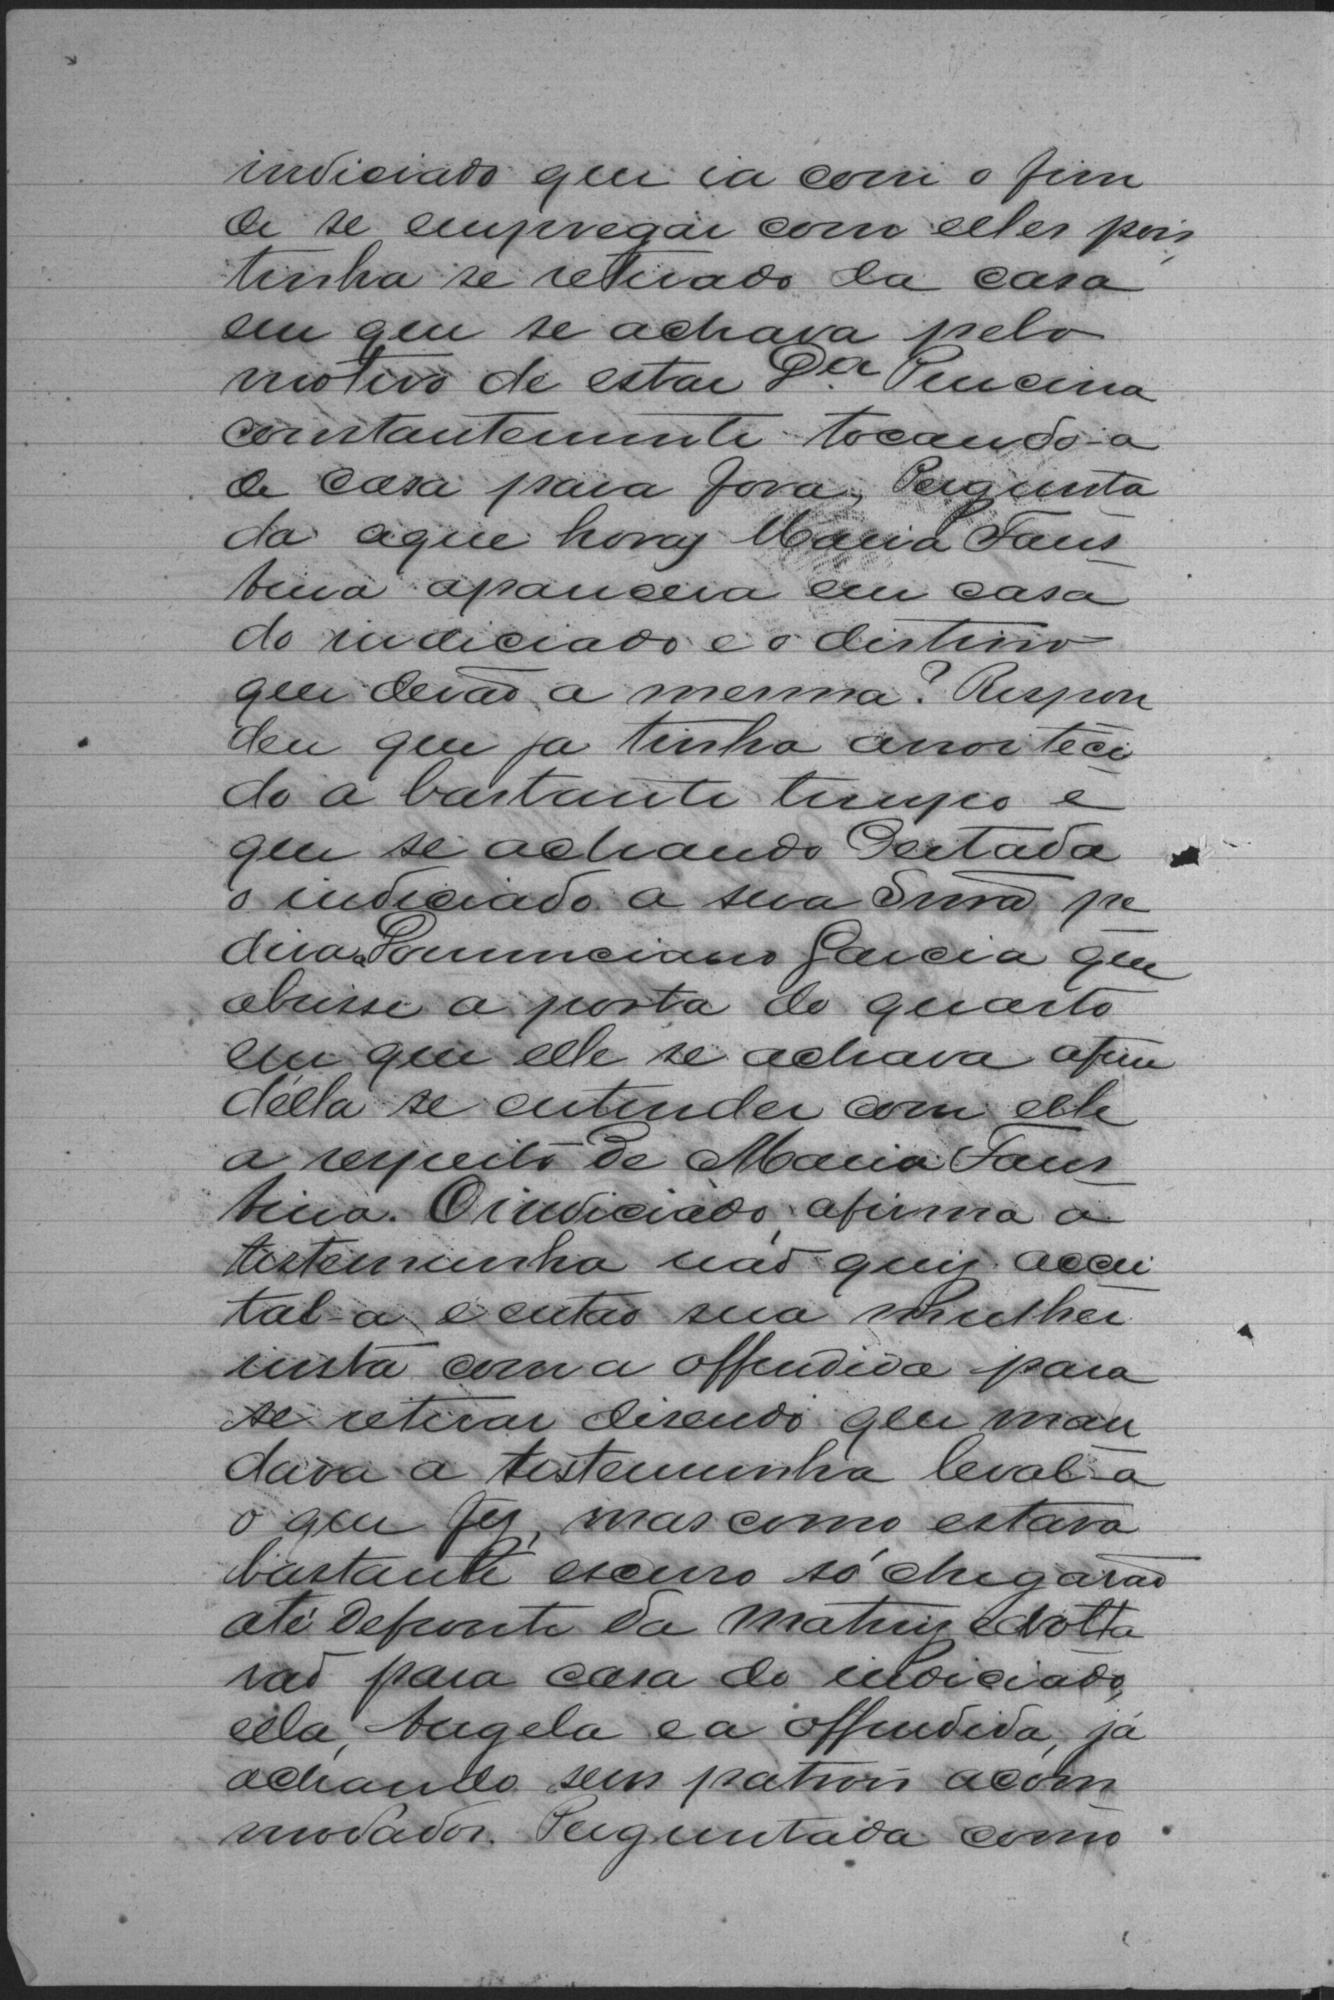 indiciado que ia com o fim
de se empregar com elles pois
tinha se retirado da casa
em que se achava pelo
motivo de estar Dª
constantemente tocando-a
de casa para fora, Pergunta
da aque horas Maria Faus
tina aparecera em casa
do indiciado e o destino
que derão a mesma? Respon
deu que ja tinha anoiteci
do a bastante tempo e
que se achando Deitada
o indiciado a sua Snrª pe
dira Garcia que
abrisse a porta do quarto
em que elle se achava afim
d'ella se entender com elle
a respeito de Maria Faus
tina. O indiciado, afirma a
testemunha não quiz accei
tal-a e então sua mulher
insta com a offendida para
se retirar disendo que man
dava a testemunha leval-a
o que fez, mas como estava
bastante escuro só chegarão
até defronte da Matriz e volta
rão para casa do indiciado,
ella, Angela e a offendida, já
achando seus patrois acom
modados. Perguntada como